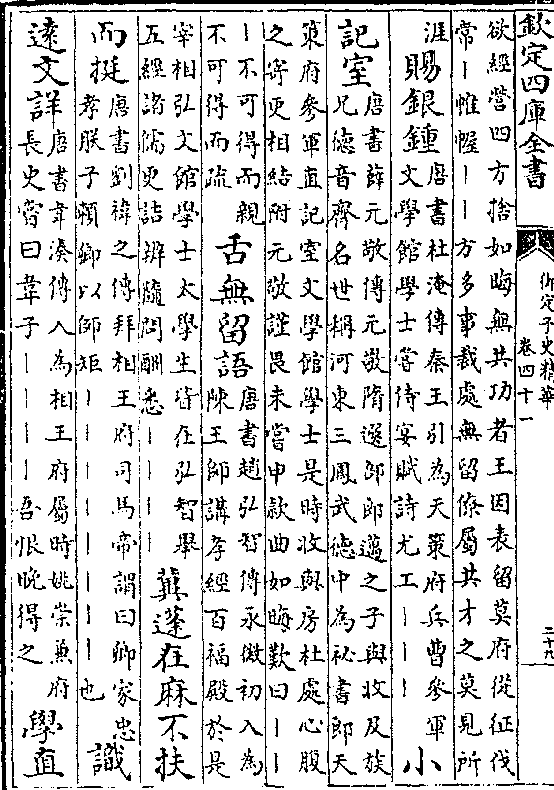 欽定四庫全書
御定子史精華
卷四十一
二十九
欲經營四方捨如晦無共功者王因表留莫府從征伐
常丨帷幄丨丨方多事裁處無留僚屬共才之莫見所
涯
賜銀鍾
唐書杜淹傳秦王引為天策府兵曹參軍
文學館學士嘗侍宴賦詩尤工丨丨丨
小
記室
唐書薛元敬傳元敬隋選部郎邁之子與收及族
兄德音齊名世稱河東三鳳武德中為祕書郎天
策府參軍直記室文學館學士是時收與房杜處心腹
之寄更相結附元敬謹畏未嘗申款曲如晦歎曰丨丨
丨不可得而親
不可得而疏
舌無留語
唐書趙弘智傳永徽初入為
陳王師講孝經百福殿於是
宰相弘文館學士太學生皆在弘智舉
五經諸儒更詰辨隨問酬悉丨丨丨丨
冀蓬在麻不扶
而挺
唐書劉褘之傳拜相王府司馬帝謂曰卿家忠
孝朕子賴卿以師矩丨丨丨丨丨丨丨也
識
遠文詳
唐書韋湊傳入為相王府屬時姚崇兼府
長史嘗曰韋子丨丨丨丨吾恨晚得之
學直